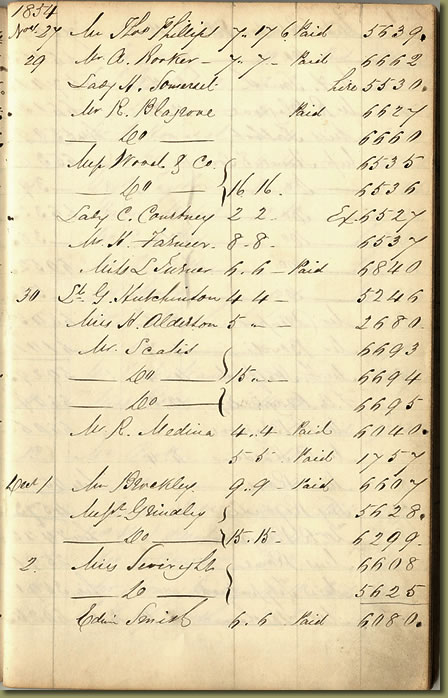 1854
Nov. 27 Mr Thos Phillips 7.17 6 Paid 5639.
29 Mr A. Rooker - 7-7- Paid 6662
Lady H. Somerset hire 5530.
Mr R. Blagrove Paid 6627
— Do — 6660
Wood & Co. 6535
— Do — } 16 16. 6536
Lady C. Courtney 2 2. Ex. 6527
Mr H. Farmer. 8-8- 6537
Miss L Turner 6.6 - Paid 6840
30 Lt. G. Hutchinson 4 4 - 5246
Miss H. Alderson 5 - - 2680
Mr. Scates 6693
— Do — } 15 - - 6694
— Do — 6695
Mr R. Medina 4.4 Paid 6040.
5 5 Paid 1757
Dec 1 Mr Brockley. 9.9 Paid 6607
Grindley 5628.
— Do — } 15.15. 6299.
2. Miss 6608
— Do — } 5625
Edwin Smith 6.6 Paid 6080.